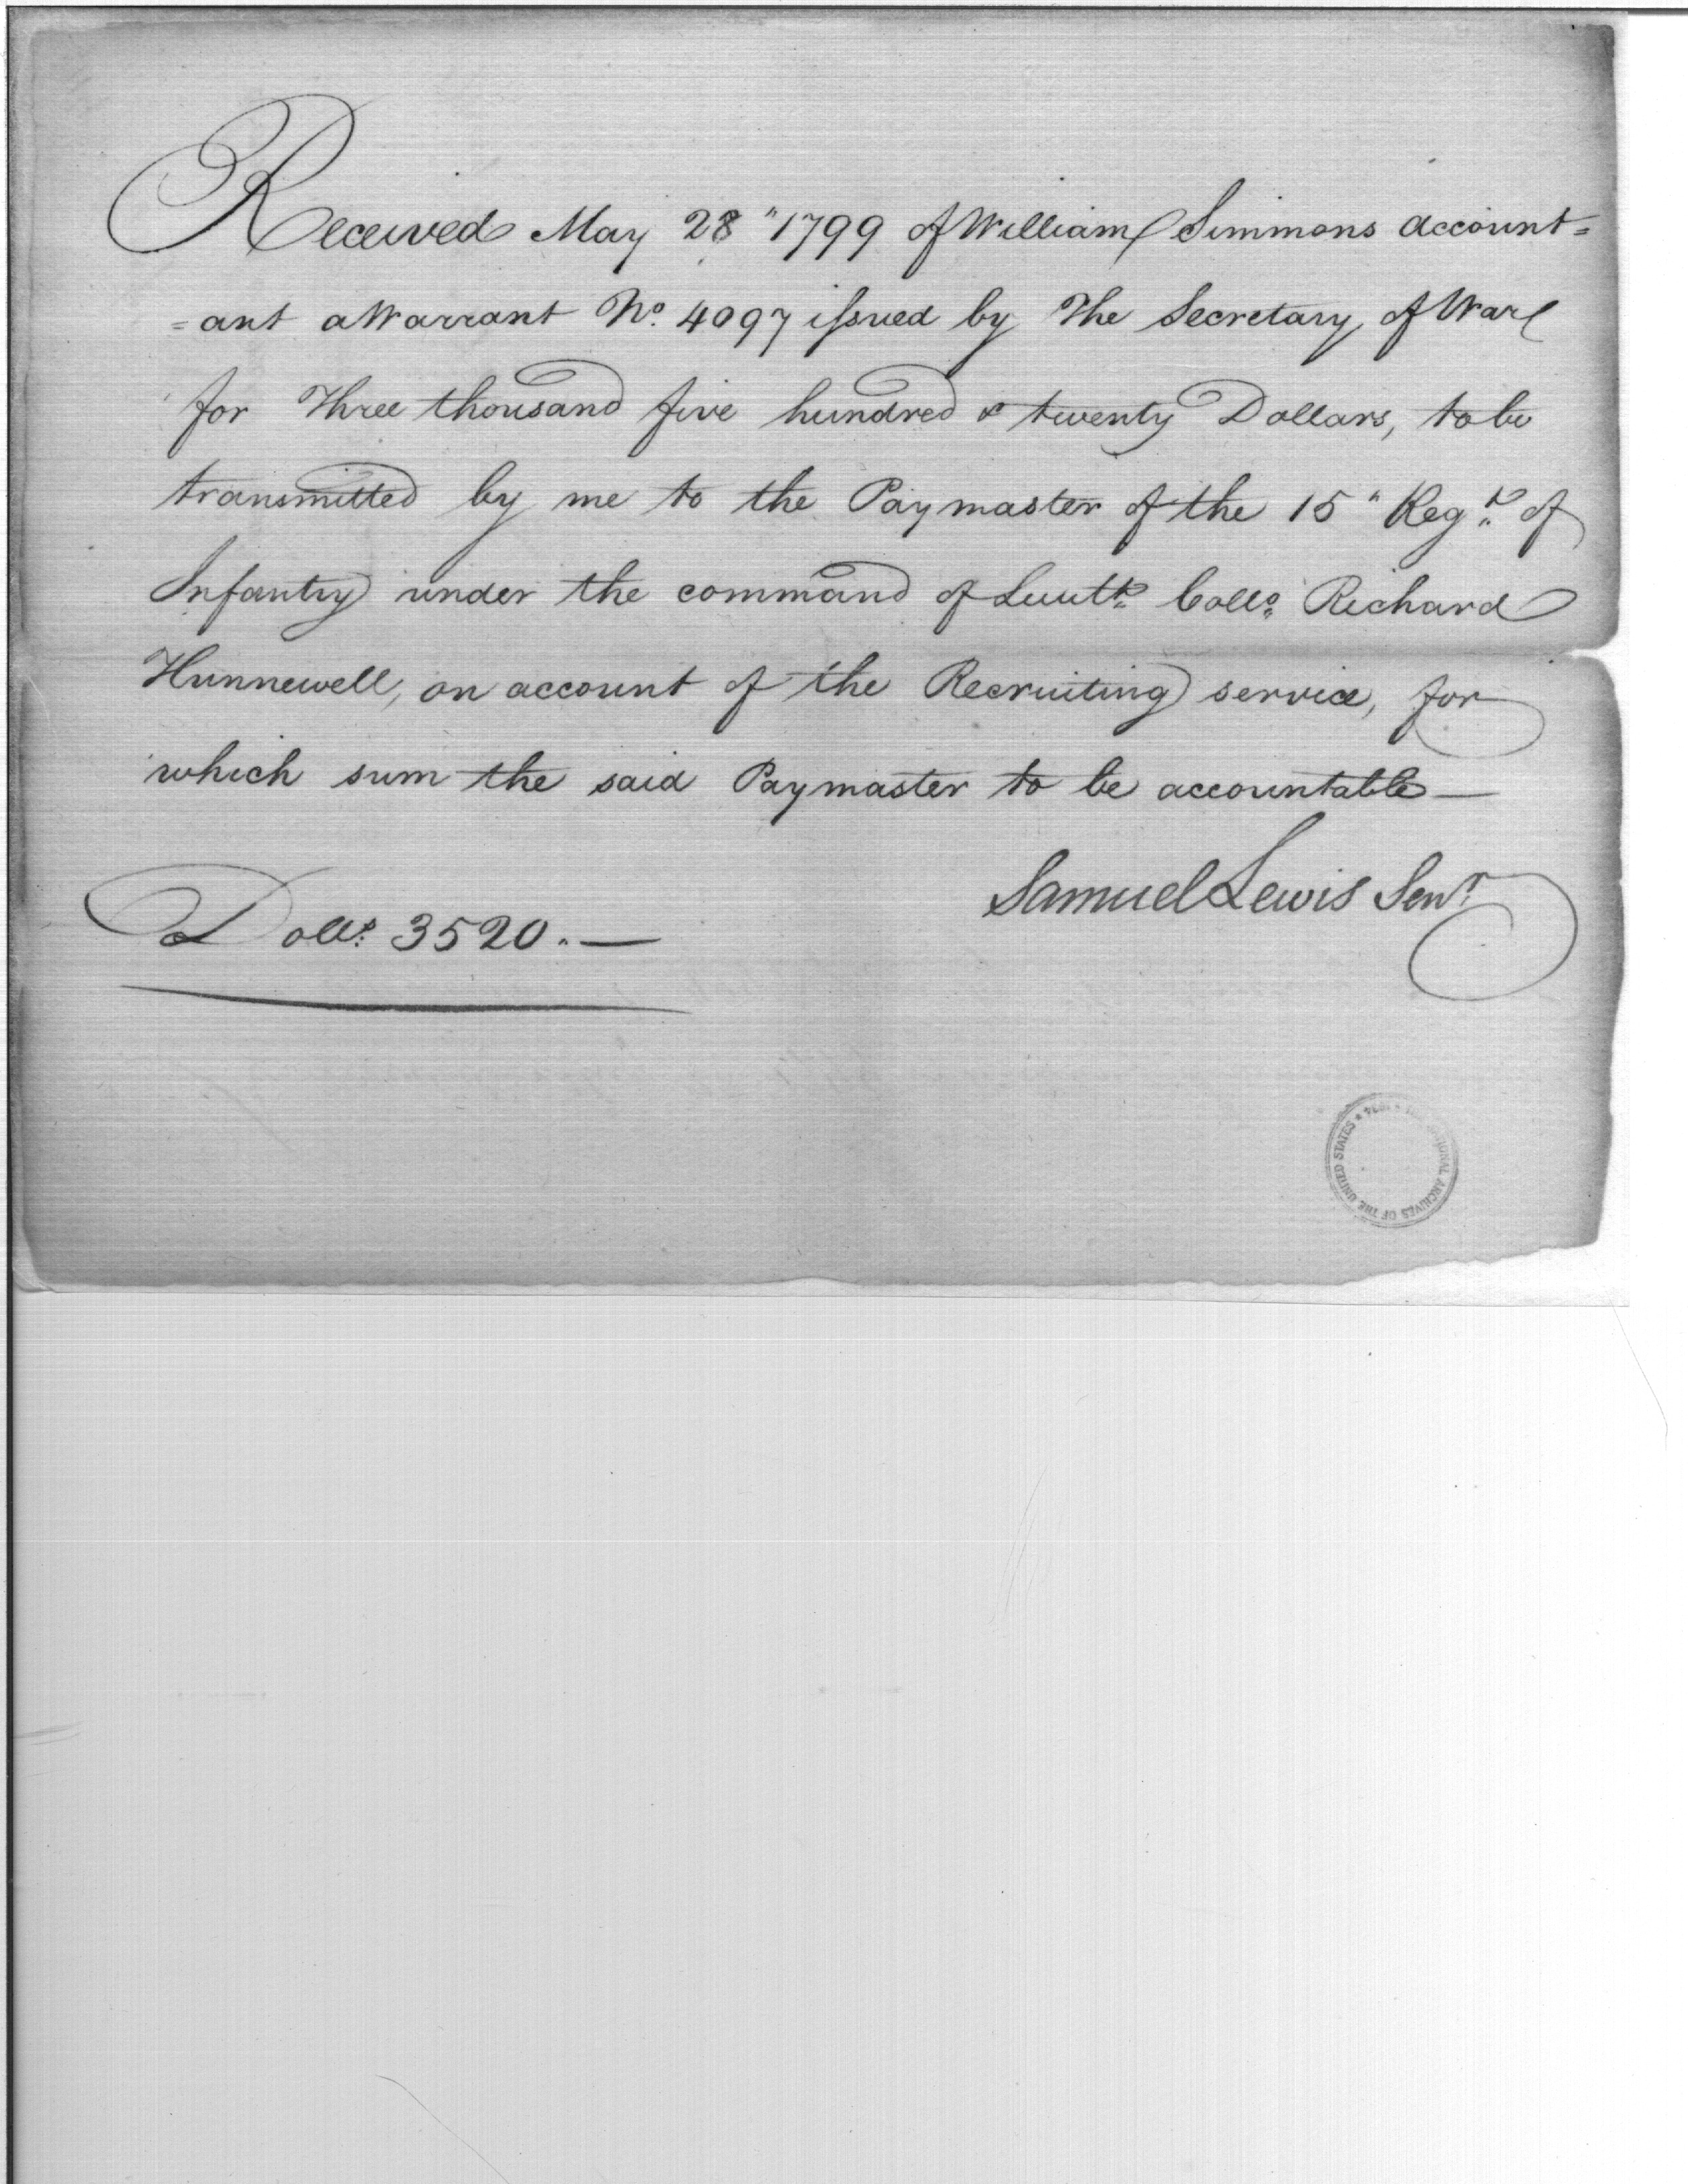 Received May 28" 1799 of William Simmons Account=
=ant a Warrant No. 4097 issued by The Secretary of War
for Three thousand five hundred & twenty Dollars, to be
transmitted by me to the Paymaster of the 15" Regt. of
Infantry under the command of Lieutt. Collo. Richard
Hunnewell, on account of the Recruiting service, for
which sum the said Paymaster to be accountable—
Samuel Lewis Senr.
Dolls. 3520.—
NATIONAL ARCHIVES OF THE UNITED STATES ★ 1934